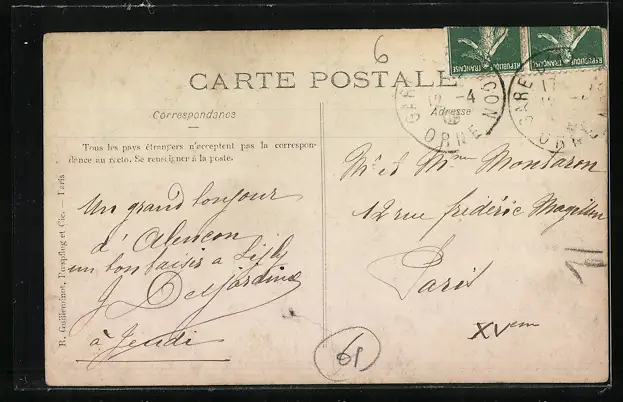 6
CARTE POSTALE
Correspondance
Adresse
Tous les pays étrangers n'acceptent pas la correspon-
dance au recto. Se renseigner à la poste.
RÉPUBLIQUE FRANÇAISE
RÉPUBLIQUE FRANÇAISE
GARE
12 -4
ORNE
GARE
Un grand bonjour
d'Alençon
un bon baiser à
J Desjardins
à Jeudi
Mr et Mme Montaron
12 rue frédéric Magisson
Paris
XVem
61
R. Guilleminot, Bœspflug et Cie. — Paris